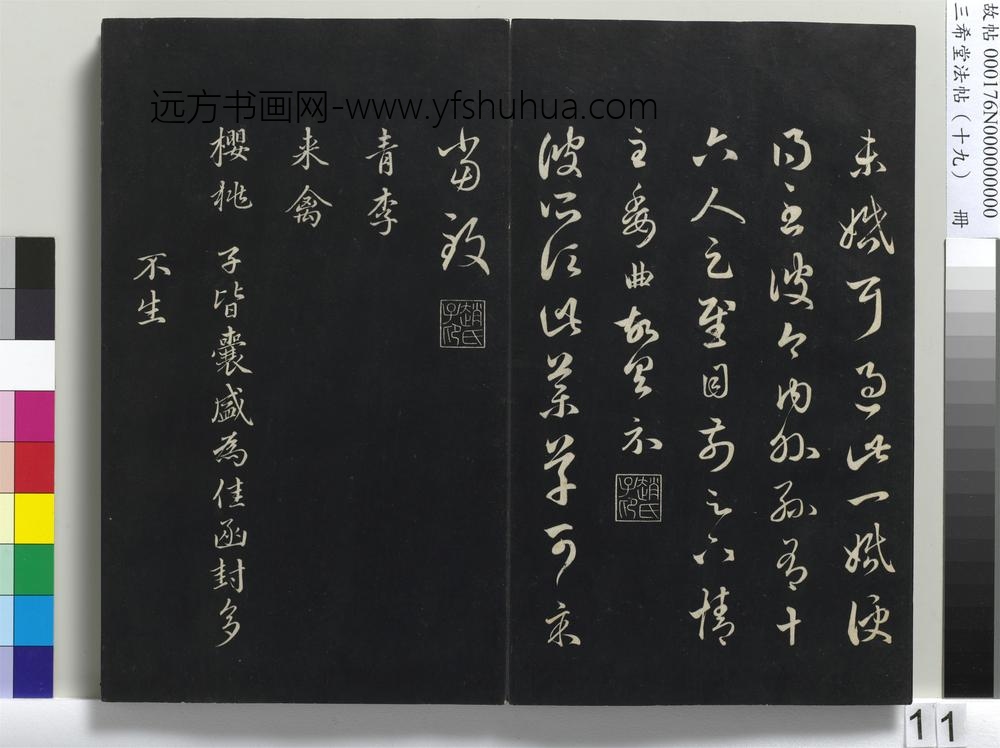 未婚耳過此一婚便
得至彼今内外孫有十
六人足慰目前足下情
至委曲故具示
趙氏子印
彼所須此藥草可示
當致
趙氏子印
青李
来禽
櫻桃 子皆囊盛為佳函封多
不生
远方书画网-www.yfshuhua.com
故帖 000176N000000000
三希堂法帖（十九） 冊
11